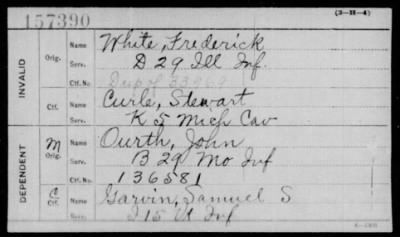 157390
(3-H-4)
INVALID
Orig.
Name White, Frederick
Serv. D 29 Ill Inf.
Ctf. No.
Ctf.
Name Curle, Stewart
Serv. K 5 Mich Cav
DEPENDENT
M Orig.
Name Ourth, John
Serv. B 29 Mo Inf
Ctf. No. 136581
C Ctf.
Name Garvin, Samuel S
Serv. I 15 Inf